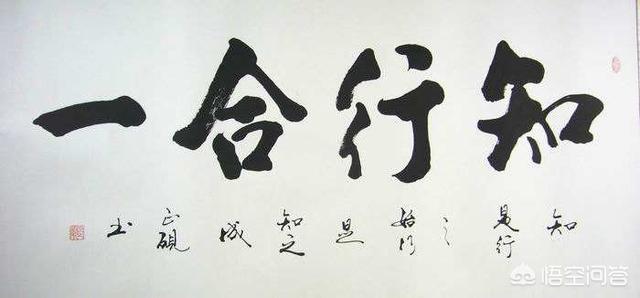 知行合一
知是行之始行是知之成 正硯书
悟空问答